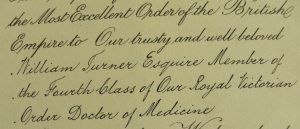 the Most Excellent Order of the British
Empire to Our trusty and well beloved
William Turner Esquire Member of
the Fourth Class of Our Royal Victorian
Order Doctor of Medicine